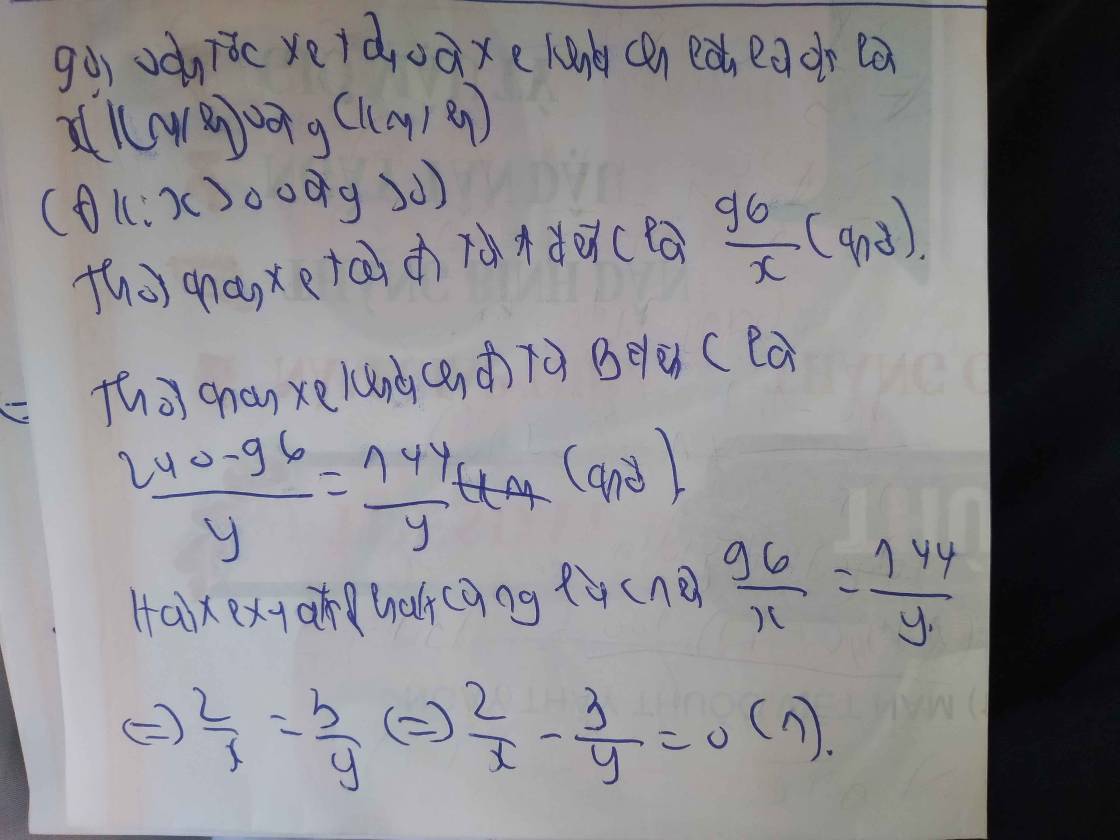 gọi vận tốc xe tải và xe khách lần lượt là
x(km/h) và y (km/h)
(ĐK: x > 0 và y > 0)
Thời gian xe tải đi từ A đến C là 96/x (giờ).
Thời gian xe khách đi từ B đến C là
240-96/y = 144/y (giờ).
Hai xe xuất phát cùng lúc nên 96/x = 144/y.
(=) 2/x = 3/y (=) 2/x - 3/y = 0 (1).